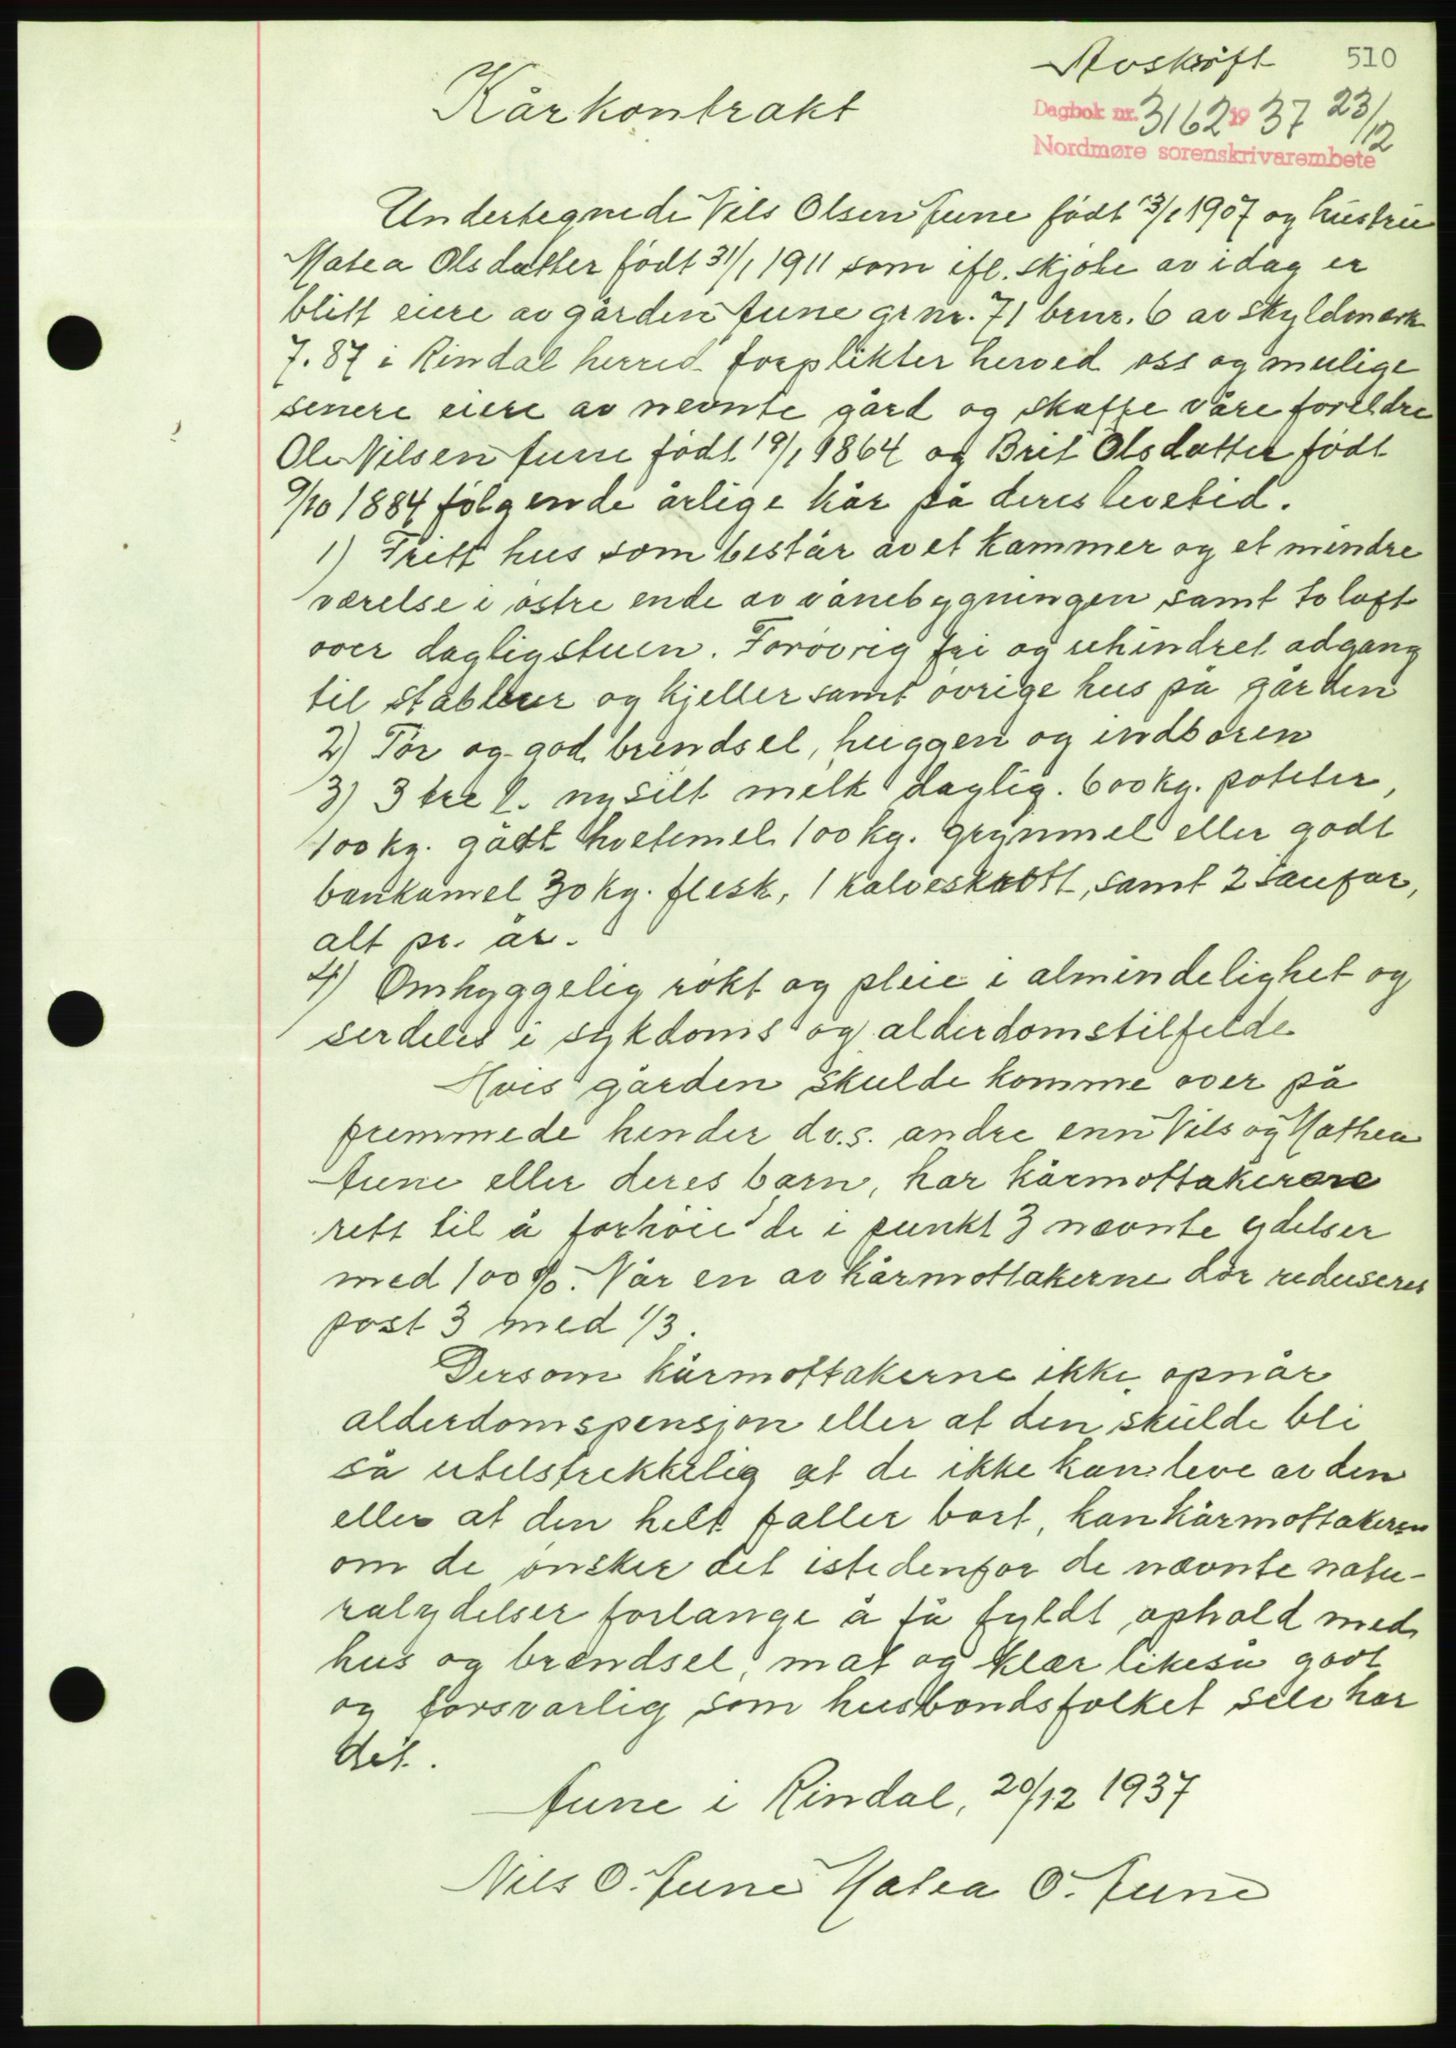 Avskrift 510
Kårkontrakt
Dagbok nr. 3162 1937 23/12
Nordmøre sorenskrivarembete
Undertegnede Nils Olsen Aune født 13/1 1907 og hustru
Matea Olsdatter født 31/1 1911 som ifl. skjøte av idag er
blitt eiere av gården Aune grnr. 71 brnr. 6 av skyldmark
7.87 i Rindal herred forplikter herved oss og mulige
senere eiere av nevnte gård og skaffe våre foreldre
Ole Nilsen Aune født 19/1 1864 og Brit Olsdatter født
9/10 1884 følgende årlige kår på deres levetid.
1) Fritt hus som består av et kammer og et mindre
værelse i østre ende av vånebygningen samt to loft
over dagligstuen. Forøvrig fri og uhindret adgang
til stabbur og kjeller samt øvrige hus på gården
2) Tør og god brendsel, huggen og indboren
3) 3 tre l. nysilt melk daglig. 600 kg. poteter,
100 kg. godt hvetemel 100 kg. grynmel eller godt
bankamel 30 kg. flesk, 1 kalveskrott, samt 2 saufar,
alt pr. år.
4) Omhyggelig røkt og pleie i almindelighet og
serdeles i sykdoms og alderdomstilfelde
Hvis gården skulde komme over på
fremmede hender dv.s. andre enn Nils og Mathea
Aune eller deres barn, har kårmottakerene
rett til å forhøie de i punkt 3 nævnte ydelser
med 100%. Når en av kårmottakerne dør reduseres
post 3 med 1/3.
Dersom kårmottakerne ikke opnår
alderdomspensjon eller at den skulde bli
så utilstrekkelig at de ikke kan leve av den
eller at den helt faller bort, kan kårmottakeren
om de ønsker det istedenfor de nævnte natu-
ralydelser forlange å få fyldt ophold med
hus og brændsel, mat og klær likeså godt
og forsvarlig som husbondsfolket selv har
det.
Aune i Rindal, 20/12 1937
Nils O. Aune Matea O. Aune